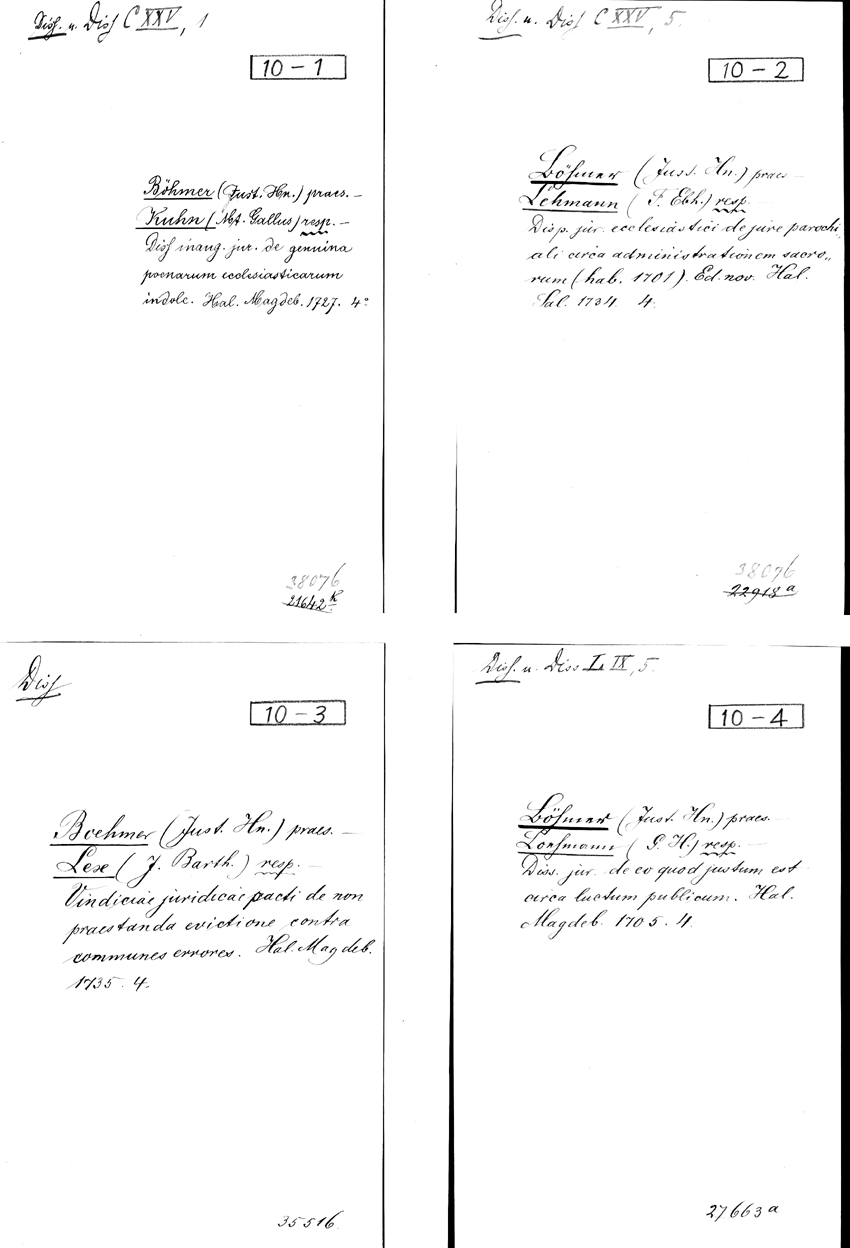 Diss. u. Diss C XXV, 1
10 – 1
Böhmer (Just. Hn.) praes. –
Kuhn (Mt. Gallus) resp. –
Diss inaug. jur. de genuina
poenarum ecclesiasticarum
indole. Hal. Magdeb. 1727. 4°
38076
21642 k
Diss. u. Diss C XXV, 5.
10 – 2
Böhmer (Just. Hn.) praes –
Lehmann ( F. Ebh.) resp. –
Disp. jur. ecclesiastici de jure parochi„
ali circa administrationem sacro„
rum (hab. 1701). Ed. nov. Hal.
Sal. 1734 4.
38076
22918 a
Diss
10 – 3
Boehmer (Just. Hn.) praes. –
Lexe ( J. Barth.) resp. –
Vindiciae juridicae pacti de non
praestanda evictione contra
communes errores. Hal. Magdeb.
1735. 4.
35516.
Diss. u. Diss L IX, 5.
10 – 4
Böhmer (Just. Hn.) praes. –
( G. H.) resp. –
Diss. jur. de eo quod justum est
circa luctum publicum. Hal.
Magdeb. 1705. 4.
27663 a